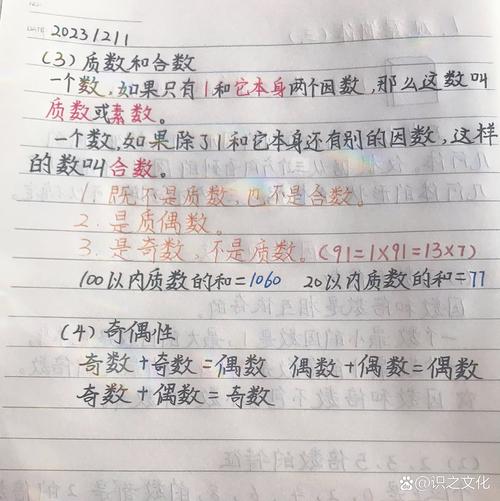 DATE 2023/2/1
(3)质数和合数
一个数,如果只有1和它本身两个因数,那么这数叫
质数或素数。
一个数,如果除了1和它本身还有别的因数,这样
的数叫合数。
1 既不是质数,也不是合数。
2.是质偶数。
3.是奇数,不是质数。(91=1×91=13×7)
100以内质数的和=1060 20以内质数的和=77
(4)奇偶性
奇数+奇数=偶数 偶数+偶数=偶数
奇数+偶数=奇数
识之文化